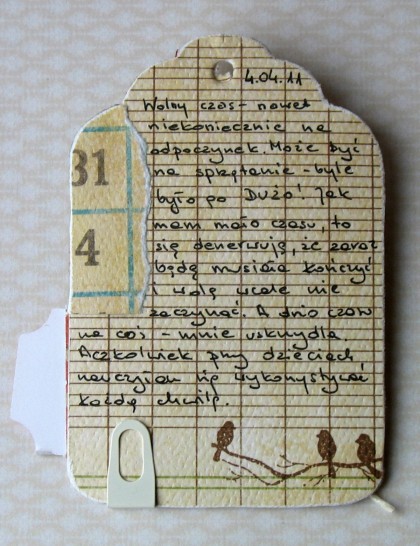 4.04.11
Wolny czas - nawet
niekoniecznie na
odpoczynek. Może być
na sprzątanie - byle
było go DUŻO! Jak
mam mało czasu, to
się denerwuję, że zaraz
będę musiała kończyć
i wolę wcale nie
zaczynać. A dużo czasu
na coś - mnie uskrzydla.
Aczkolwiek przy dzieciach
nauczyłam się wykorzystywać
każdą chwilę.
31
4